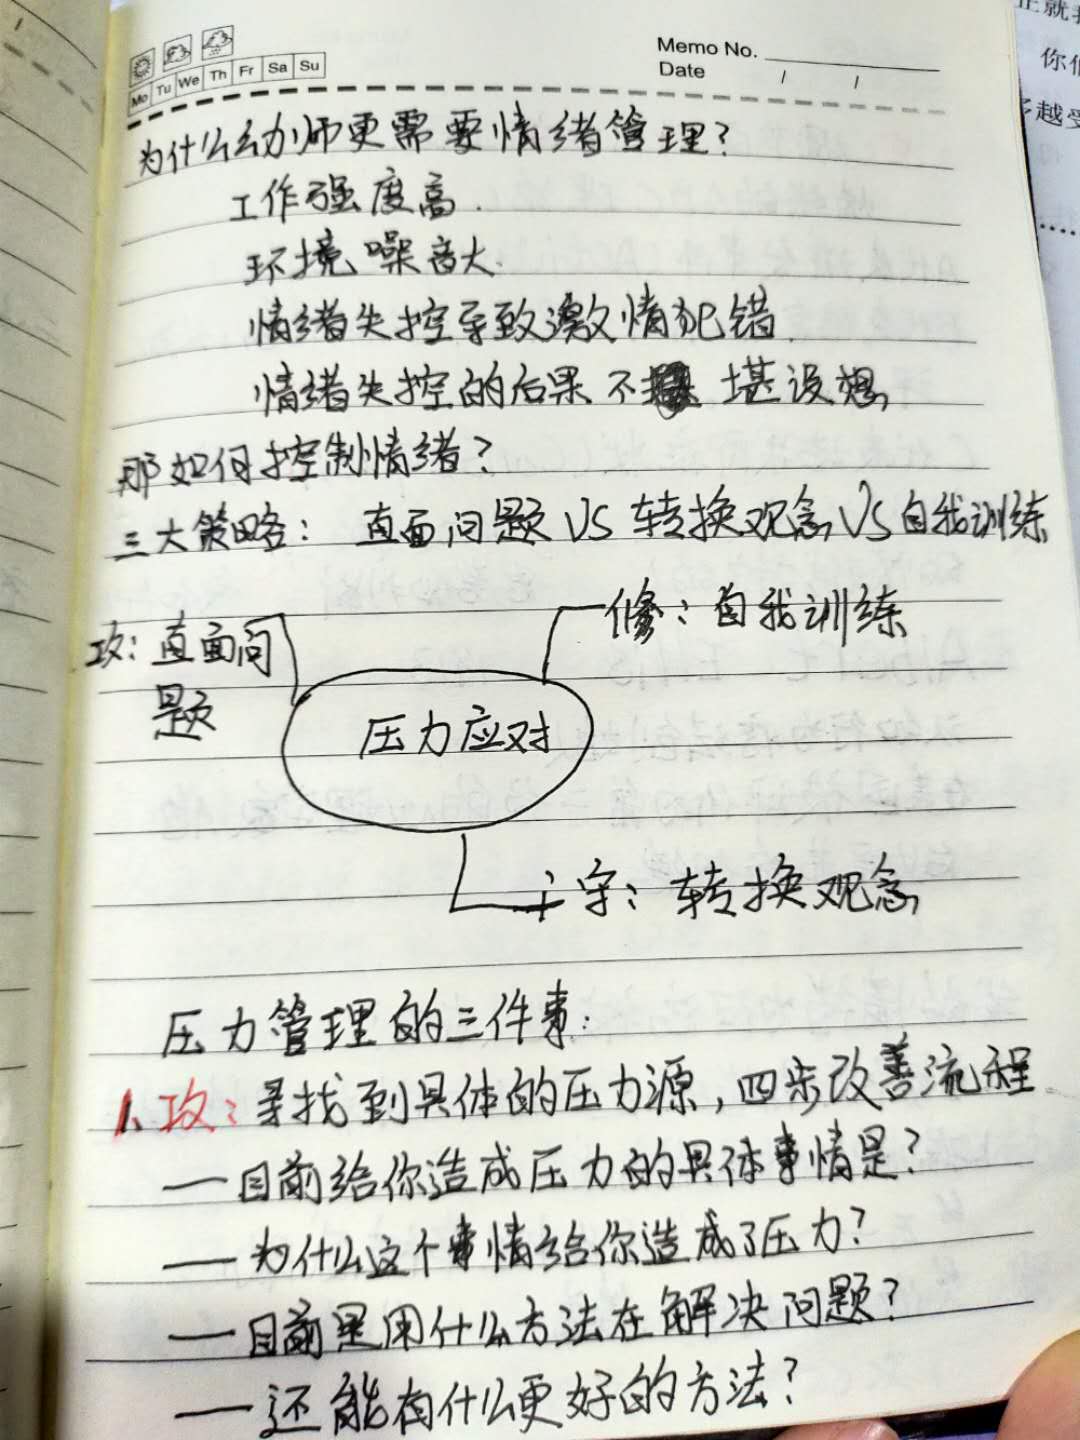 Memo No.
Mo Tu We Th Fr Sa Su
Date / /
为什么幼师更需要情绪管理?
工作强度高.
环境噪音大.
情绪失控导致激情犯错.
情绪失控的后果不堪设想
那如何控制情绪?
三大策略: 直面问题 VS 转换观念 VS 自我训练
修: 自我训练
攻: 直面问
题
压力应对
守: 转换观念
压力管理的三件事:
1、攻: 寻找到具体的压力源, 四步改善流程
—目前给你造成压力的具体事情是?
—为什么这个事情给你造成了压力?
—目前是用什么方法在解决问题?
—还能有什么更好的方法?
你们
越受